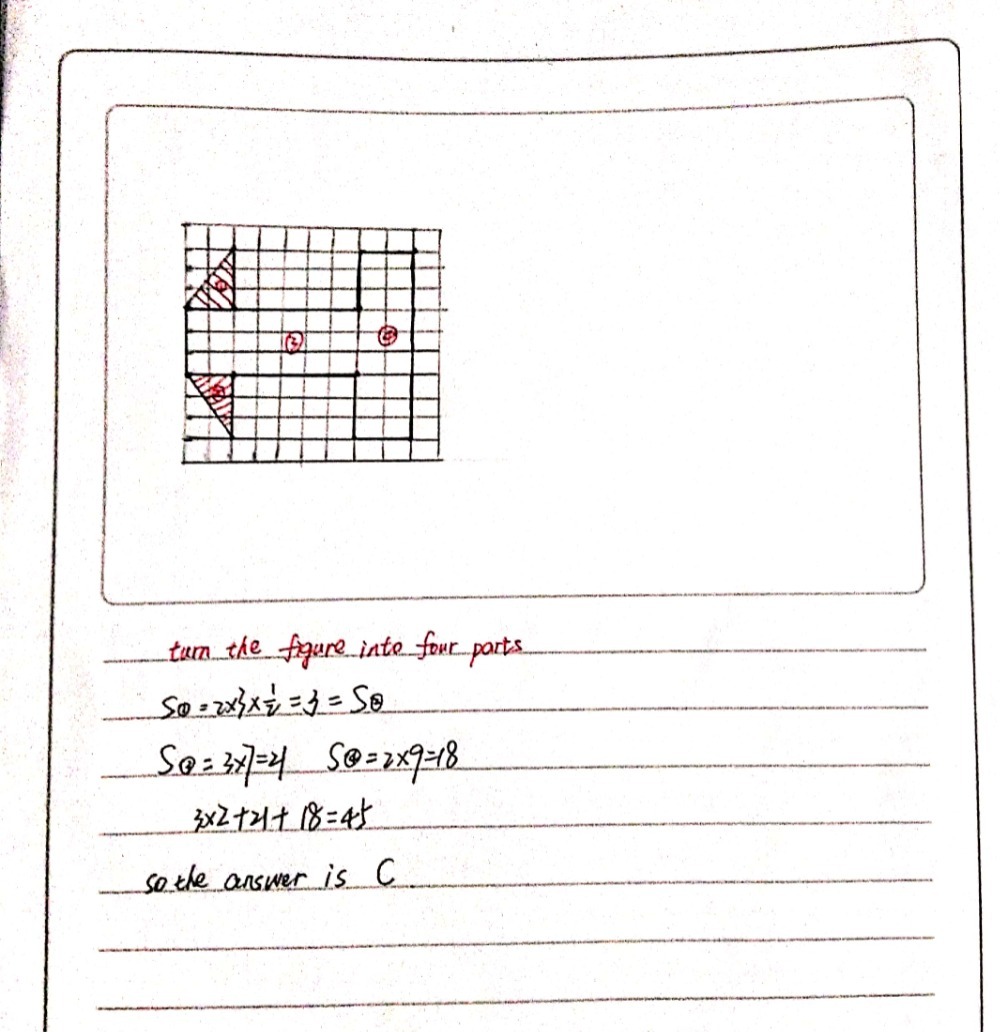 ① ③ ④ ②
turn the figure into four parts
S① = 2×3×½ = 3 = S②
S③ = 3×7=21 S④ = 2×9=18
3×2+21+18=45
so the answer is C